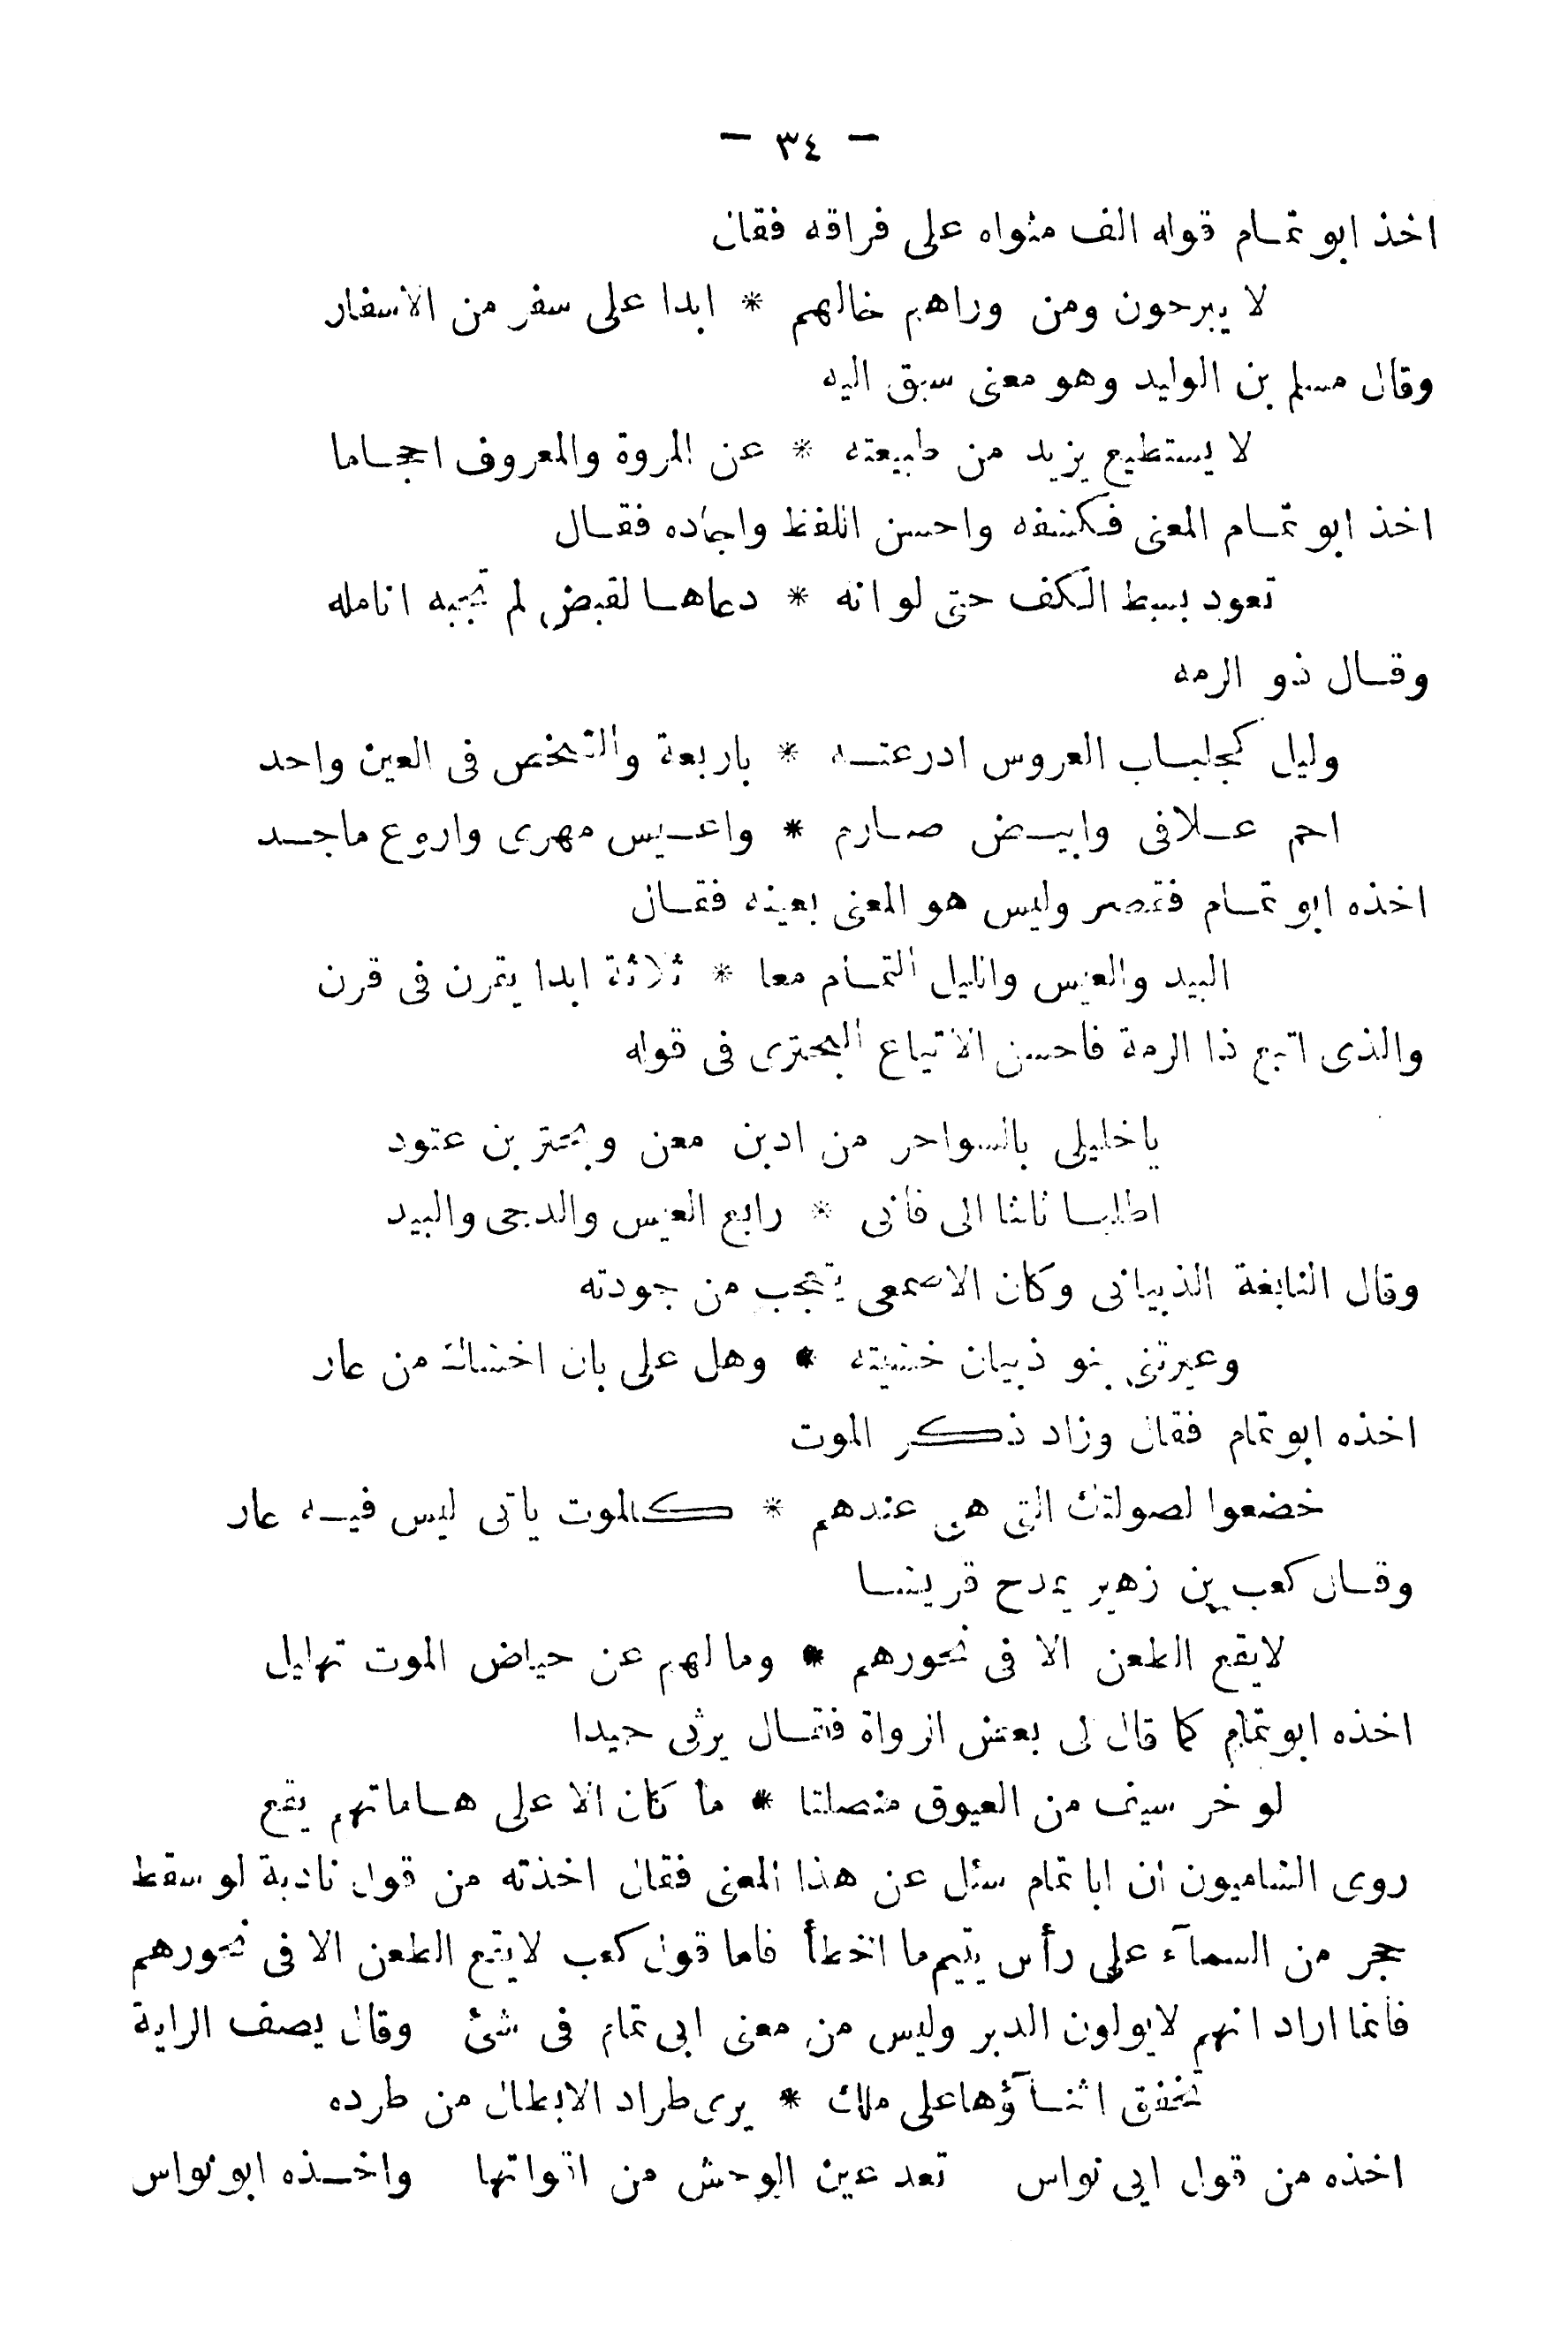 — ٣٤ —
اخذ ابو تمـام قوله الف مثواه على فراقه فقال
لا يبرحون ومن وراهم خالهم * ابدا على سفر من الاسفار
وقال مسلم بن الوليد وهو معنى سبق اليه
لا يستطيع يزيد من طبيعته * عن المروة والمعروف احجـاما
اخذ ابو تمـام المعنى فكشفه واحسن اللفظ واجاده فقـال
تعود بسط الكف حتى لو انه * دعاهـا لقبض لم تجبه انامله
وقـال ذو الرمه
وليل كجلبـاب العروس ادرعتـه * باربعة والشخص فى العين واحد
احم عـلافى وابيـض صـارم * واعـيس مهرى واروع ماجـد
اخذه ابو تمـام فقصر وليس هو المعنى بعينه فقـال
البيد والعيس والليل التمـام معا * ثلاثة ابدا يقرن فى قرن
والذى اتبع ذا الرمة فاحسن الاتباع البحترى فى قوله
ياخليلى بالسواجر من ادبن معن وبحتر بن عتود
اطلبـا ثالثا الى فانى * رابع العيس والدجى والبيد
وقال النابغة الذبيانى وكان الاصمعى يتعجب من جودته
وعيرتنى بنو ذبيان خشيته * وهل على بان اخشاك من عار
اخذه ابو تمام فقال وزاد ذكر الموت
خضعوا لصولتك التى هى عندهم * كالموت ياتى ليس فيـه عار
وقـال كعب بن زهير يمدح قريشـا
لايقع الطعن الا فى نحورهم * ومالهم عن حياض الموت تهليل
اخذه ابو تمام كما قال لى بعض الرواة فقـال يرثى حميدا
لو خر سيف من العيوق منصلتا * ما كان الا على هـاماتهم يقع
روى الشاميون ان ابا تمام سئل عن هذا المعنى فقال اخذته من قول نادبة لو سقط
حجر من السمآء على رأس يتيم ما اخطأ فاما قول كعب لايقع الطعن الا فى نحورهم
فانما اراد انهم لايولون الدبر وليس من معنى ابى تمام فى شئ وقال يصف الراية
تخفق اثنـآؤها على ملك * يرى طراد الابطال من طرده
اخذه من قول ابى نواس تعد عين الوحش من اقواتها واخـذه ابو نواس